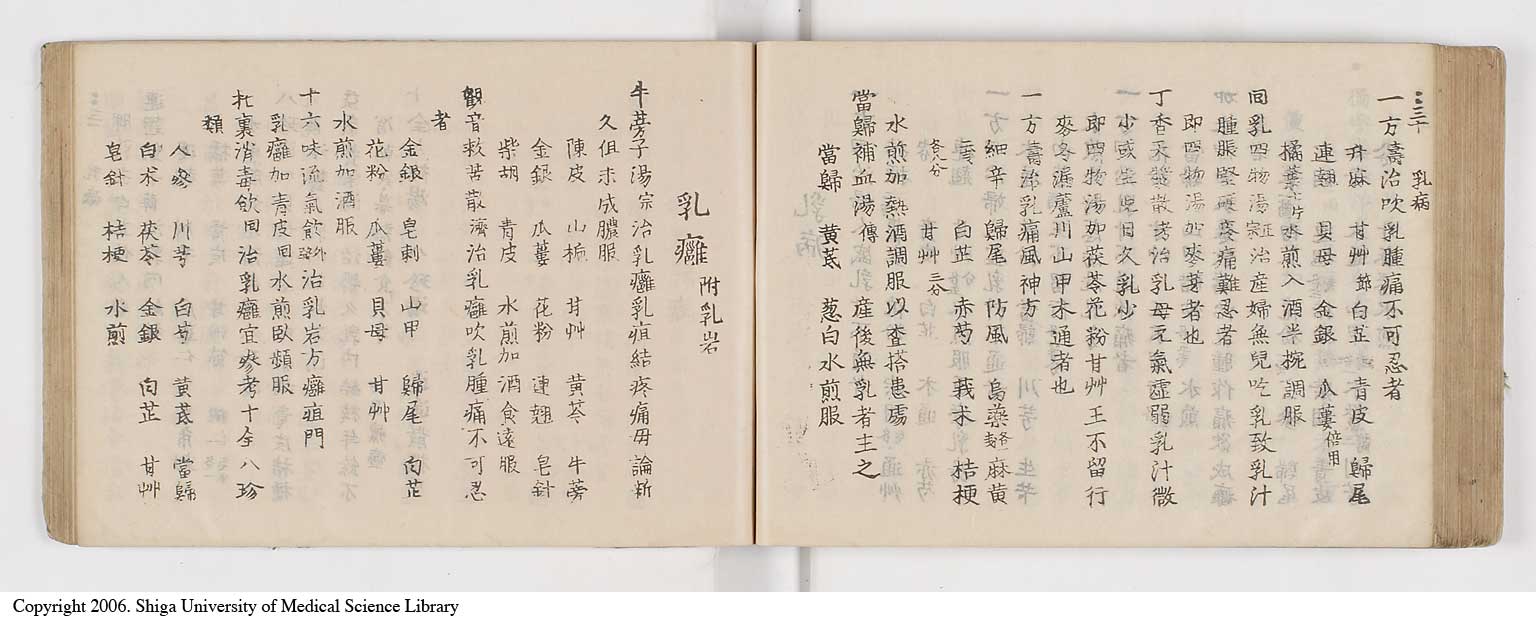 乳病
一方壽治吹乳腫痛不可忍者
升麻 甘艸節 白芷 青皮 歸尾
連翹 貝母 金銀 瓜蔞倍用
橘葉二片 水煎入酒半椀調服
回乳四物湯 治産婦無兒吃乳致乳汁
腫脹堅硬疼痛難忍者
即四物湯加麥芽者也
丁香 散壽治乳母元氣虛弱乳汁微
少或生児日久乳少
即四物湯加茯苓花粉甘艸王不留行
麥冬漏蘆川山甲木通者也
一方壽治乳痛風神方
細辛 歸尾 防風 烏藥 麻黄
白芷 赤芍 莪朮 桔梗
甘艸
水煎加熱酒調服以查搭患處
當歸補血湯傳 産後無乳者主之
當歸 黄芪 葱白水煎服
乳癰 附乳岩
牛蒡子湯宗 治乳癰乳疽結疼痛毋論新
久但未成膿服
陳皮 山梔 甘艸 黄芩 牛蒡
金銀 瓜蔞 花粉 連翹 皂針
柴胡 青皮 水煎加酒食遠服
観音救苦散濟 治乳癰吹乳腫痛不可忍
者
金銀 皂刺 山甲 歸尾 白芷
花粉 瓜蔞 貝母 甘艸
水煎加酒服
十六味流氣飲 治乳岩方癰疽門
乳癰加青皮回水煎臥頻服
托裏消毒飲回 治乳癰宜參考十全八珍
類
人參 川芎 白芍 黄芪 當歸
白朮 茯苓 金銀 白芷 甘艸
皂針 桔梗 水煎
Copyright 2006. Shiga University of Medical Science Library